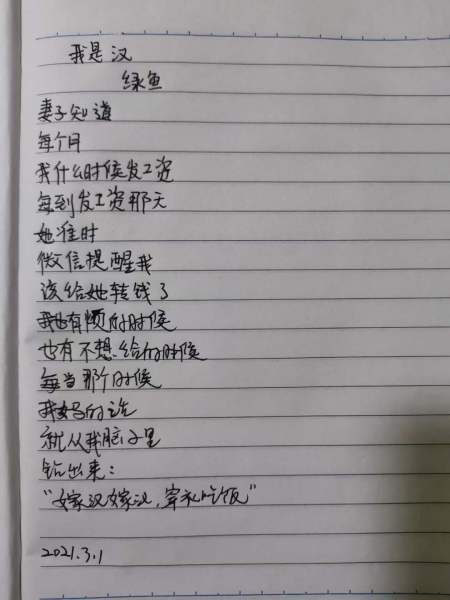 我是汉
绿鱼
妻子知道
每个月
我什么时候发工资
每到发工资那天
她准时
微信提醒我
该给她转钱了
我也有烦的时候
也有不想给的时候
每当那个时候
我妈的话
就从我脑子里
钻出来：
“嫁汉嫁汉，穿衣吃饭”
2021.3.1